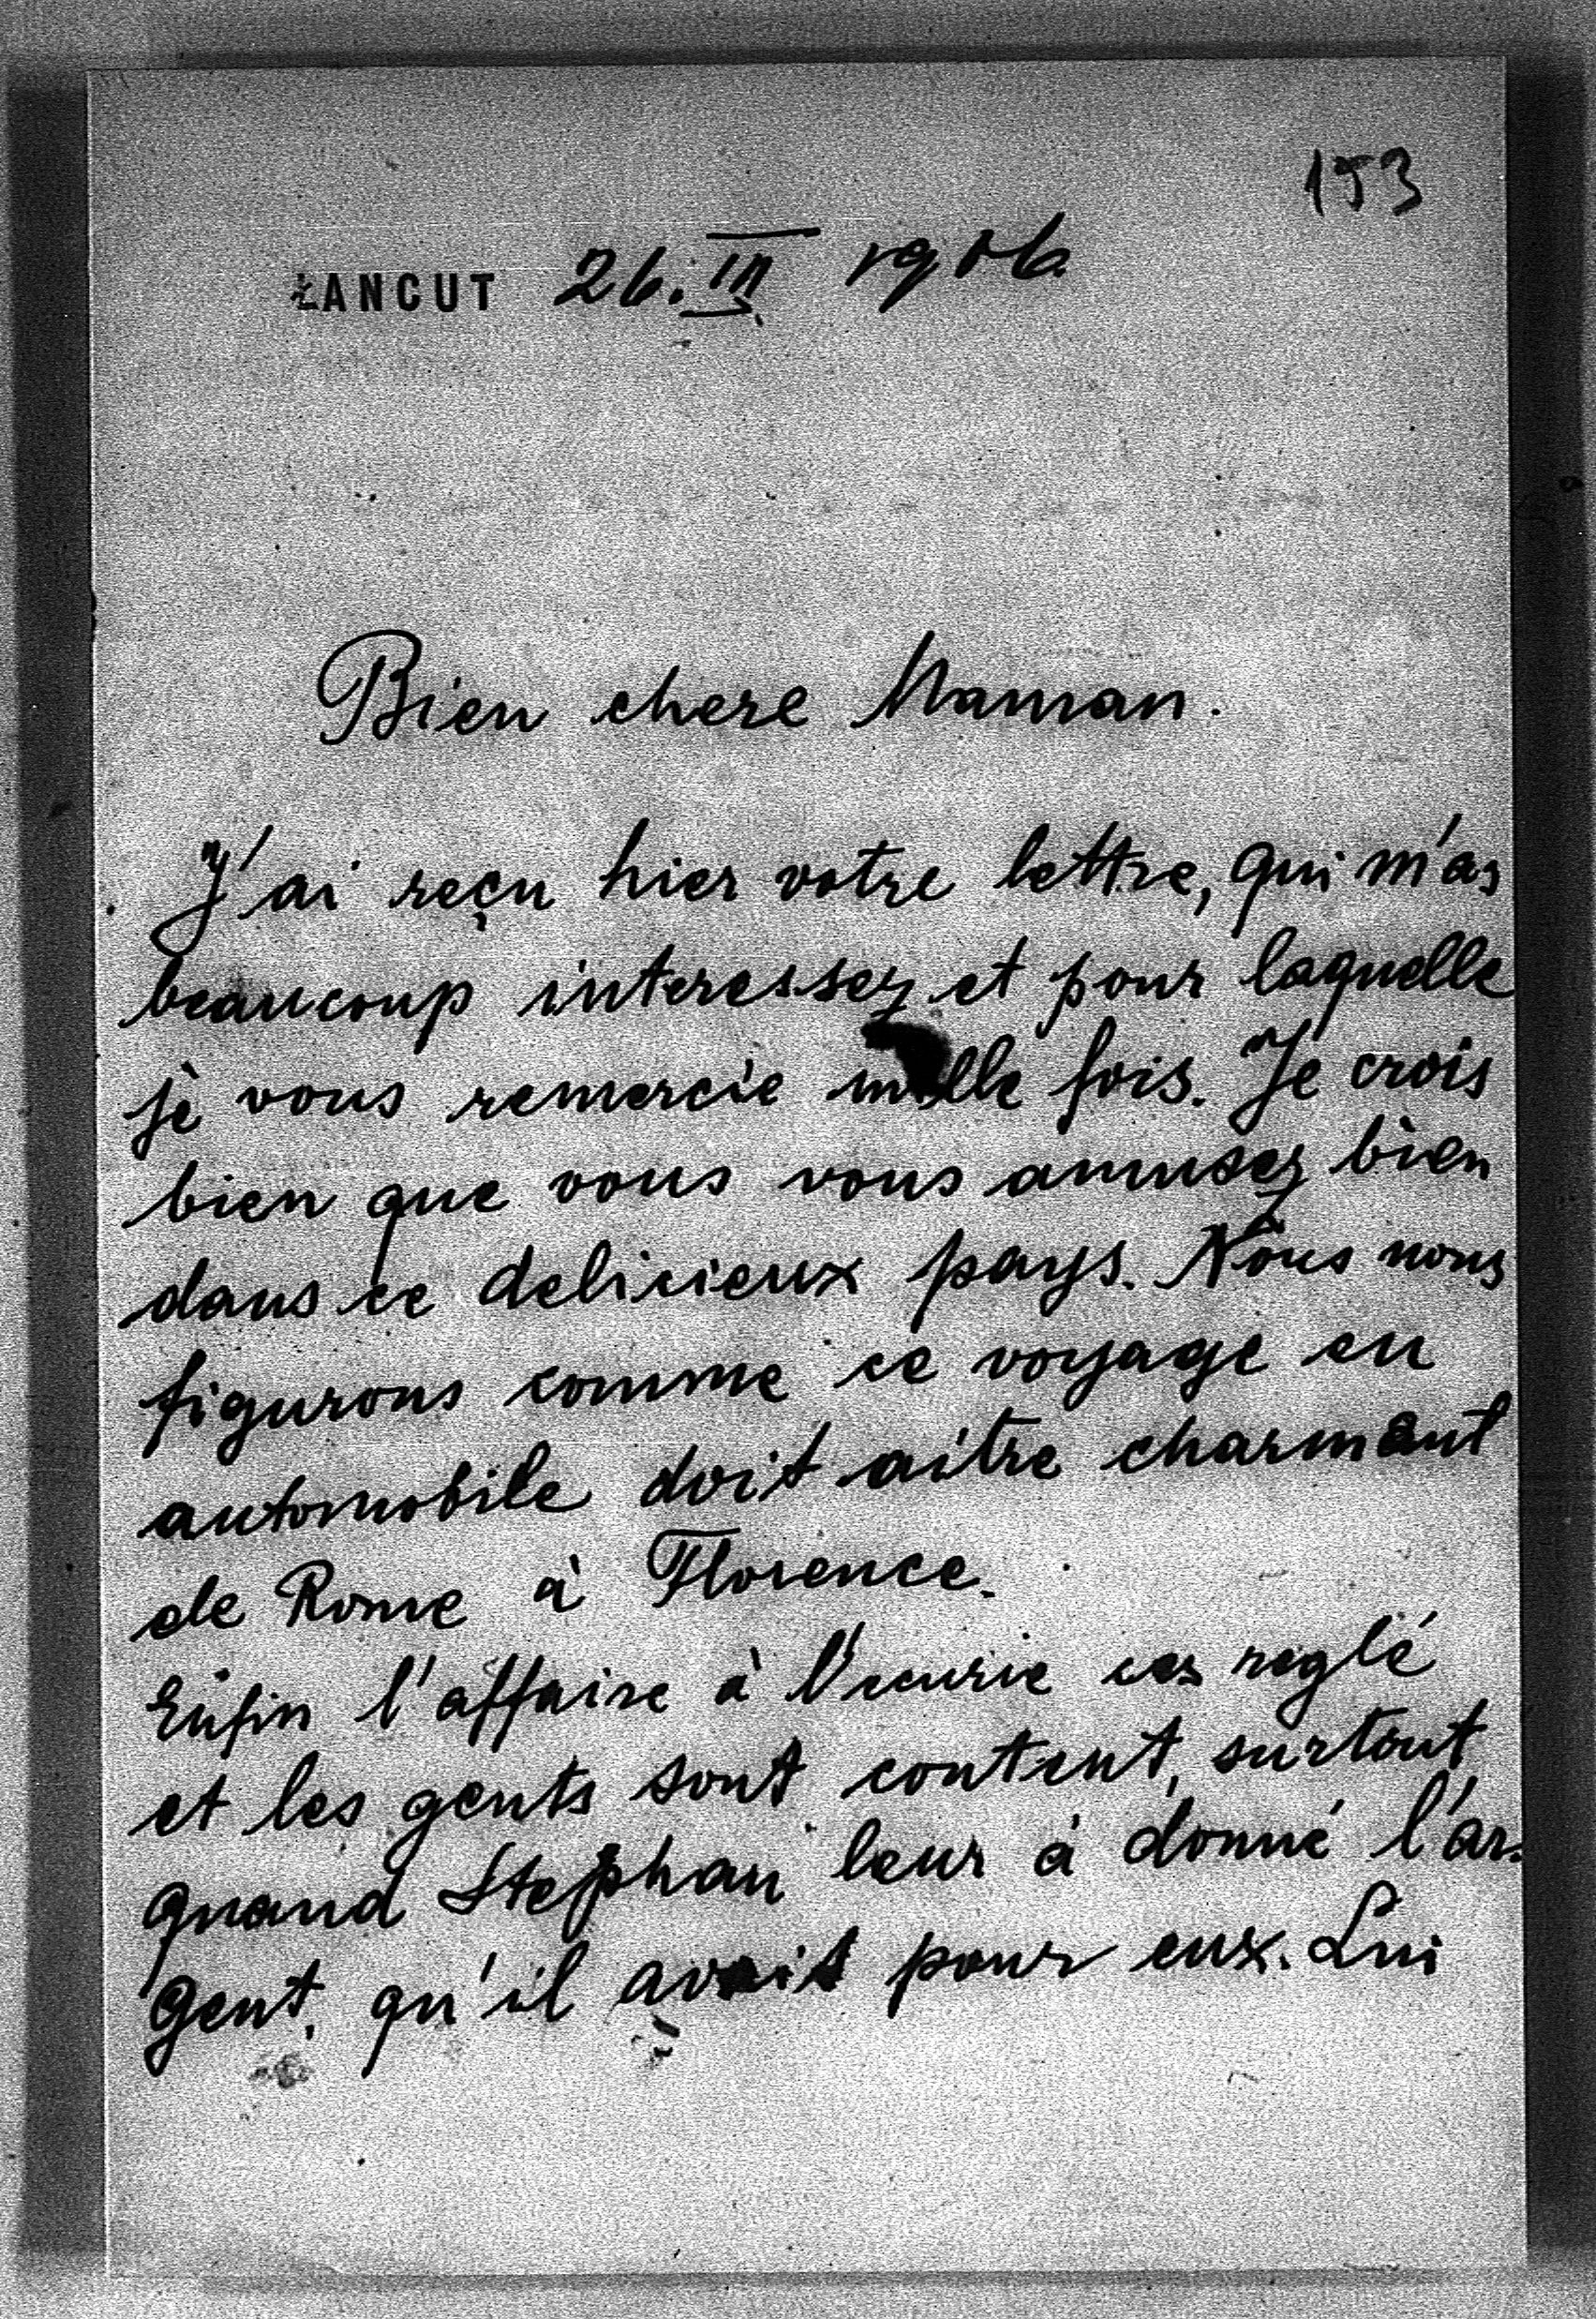 153
ŁANCUT 26. III 1906
Bien chere Maman.
J'ai reçu hier votre lettre, qui m'as
beaucoup interessez et pour laquelle
je vous remercie mille fois. Je crois
bien que vous vous amusez bien
dans ce delicieux pays. Nous nous
figurons comme ce voyage en
automobile doit aitre charmant
de Rome à Florence.
Enfin l'affaire à l'ecurie es reglé
et les gents sont content, surtout
quand Stephan leur à donné l'ar-
gent, qu'il avait pour eux. Lui